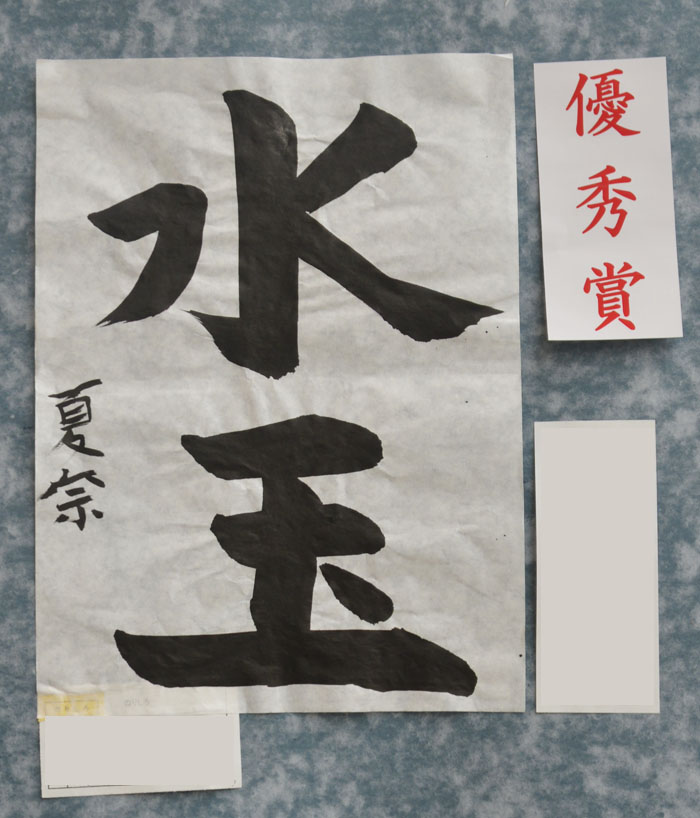 優秀賞
水玉
夏宗